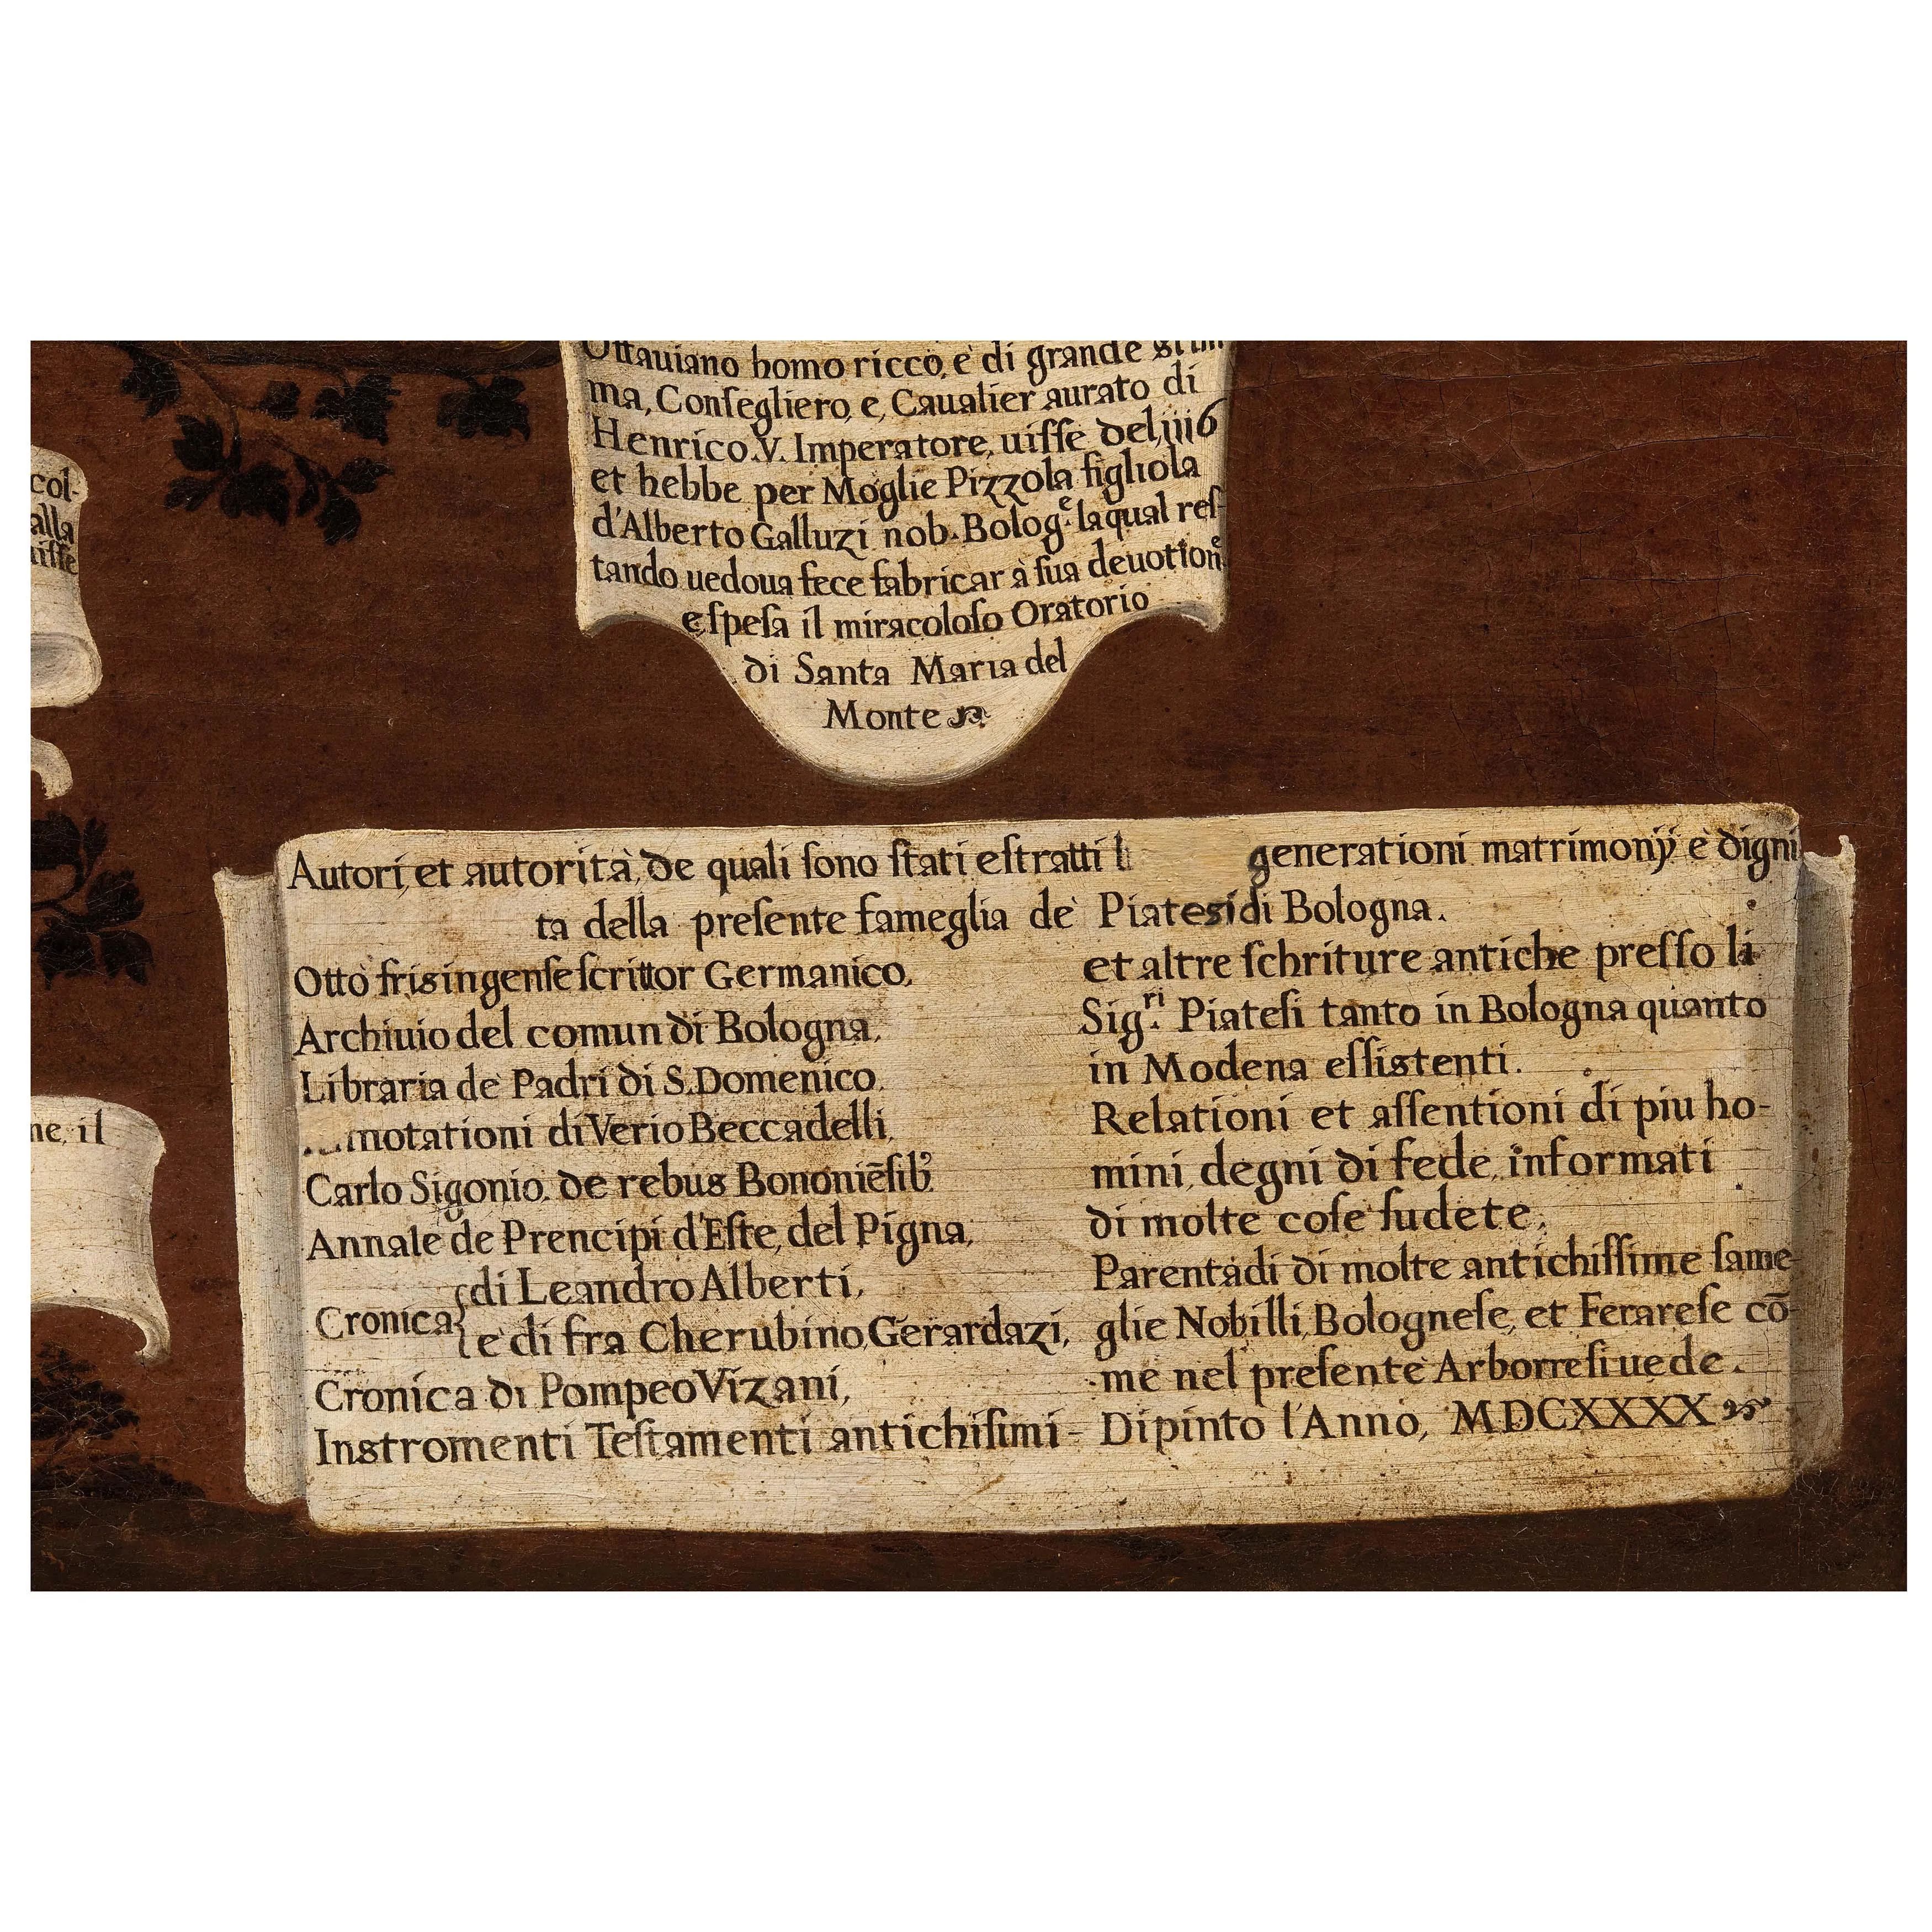 col-
alla
uisse
ne, il
Ottauiano homo ricco, è di grande stim
ma, Conſegliero, e, Caualier aurato di
Henrico.V. Imperatore, uiſſe del,1116
et hebbe per Moglie Pizzola figliola
d'Alberto Galluzi nob. Bologᵉ. la qual reſ-
tando uedoua fece fabricar à ſua deuotionᵉ
e ſpeſa il miracoloſo Oratorio
di Santa Maria del
Monte
Autori, et autorità, de quali ſono ſtati eſtratti generationi matrimonÿ è digni
ta della preſente fameglia de' Piatesi di Bologna.
Otto friſingenſe ſcrittor Germanico,
Archiuio del comun di Bologna,
Libraria de Padri di S. Domenico,
notationi di Verio Beccadelli,
Carlo Sigonio, de rebus Bononiēſib⁹
Annale de Prencipi d'Eſte, del Pigna,
di Leandro Alberti,
Cronica{
e di fra Cherubino, Gerardazi,
Cronica di Pompeo Vizani,
Instromenti Teſtamenti antichiſimi-
et altre ſchriture antiche preſſo li
Sigʳⁱ. Piateſi tanto in Bologna quanto
in Modena eſſistenti.
Relationi et aſſentioni di piu ho-
mini, degni di fede, informati
di molte coſe ſudete,
Parentadi di molte antichiſſime fame-
glie Nobilli, Bologneſe, et Ferareſe cō-
me nel preſente Arborre ſi uede.
Dipinto l'Anno, MDCXXXX